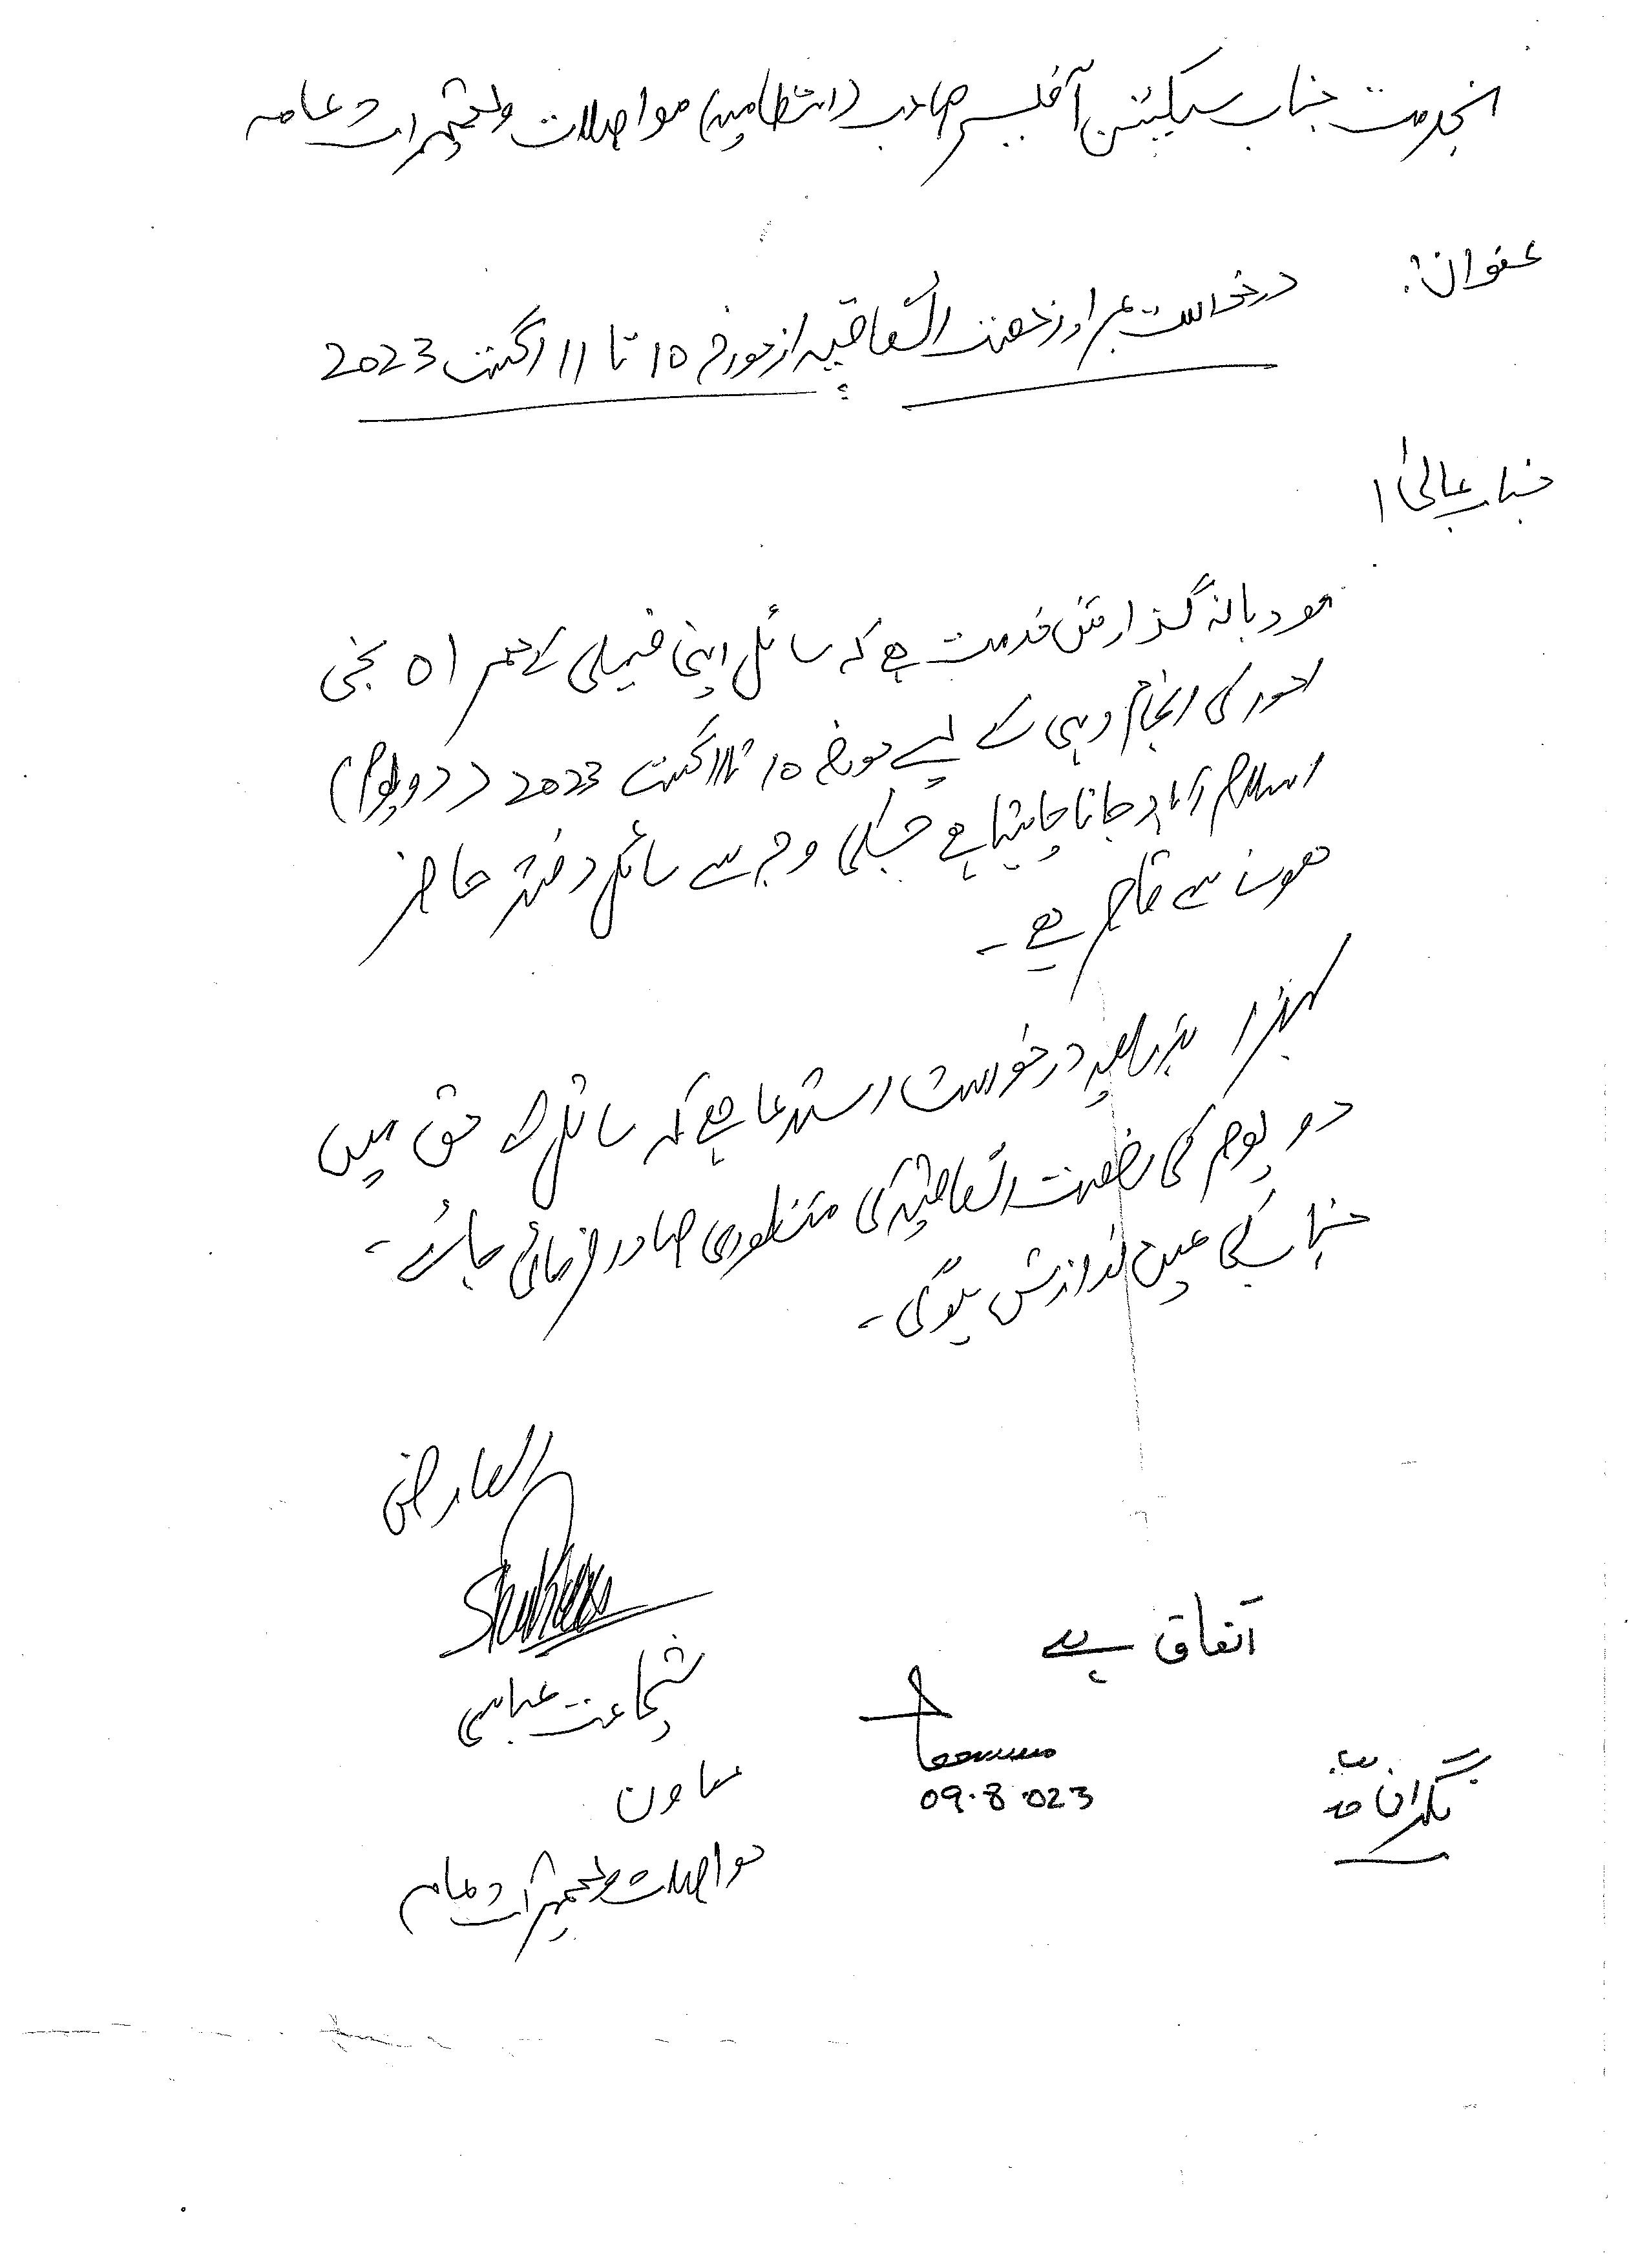 بخدمت جناب سیکشن آفیسر صاحب (انتظامیہ) مواصلات وتعمیرات عامہ
عنوان:
درخواست بمراد رخصت اتفاقیہ از مورخہ 10 تا 11 اگست 2023
جناب عالیٰ!
مودبانہ گذارش خدمت ہے کہ سائل اپنی فیملی کے ہمراہ نجی
امور کی انجام دہی کے لیے مورخہ 10 تا 11 اگست 2023 (دو یوم)
اسلام آباد جانا چاہتا ہے جسکی وجہ سے سائل دفتر حاضر
ہونے سے قاصر ہے۔
لہذا بذریعہ درخواست استدعا ہے کہ سائل کے حق میں
دو یوم کی رخصت اتفاقیہ کی منظوری صادر فرمائی جائے۔
جناب کی عین نوازش ہوگی۔
العارض
شجاعت عباسی
معاون
مواصلات وتعمیرات عامہ
اتفاق ہے
09.8.023
نگران